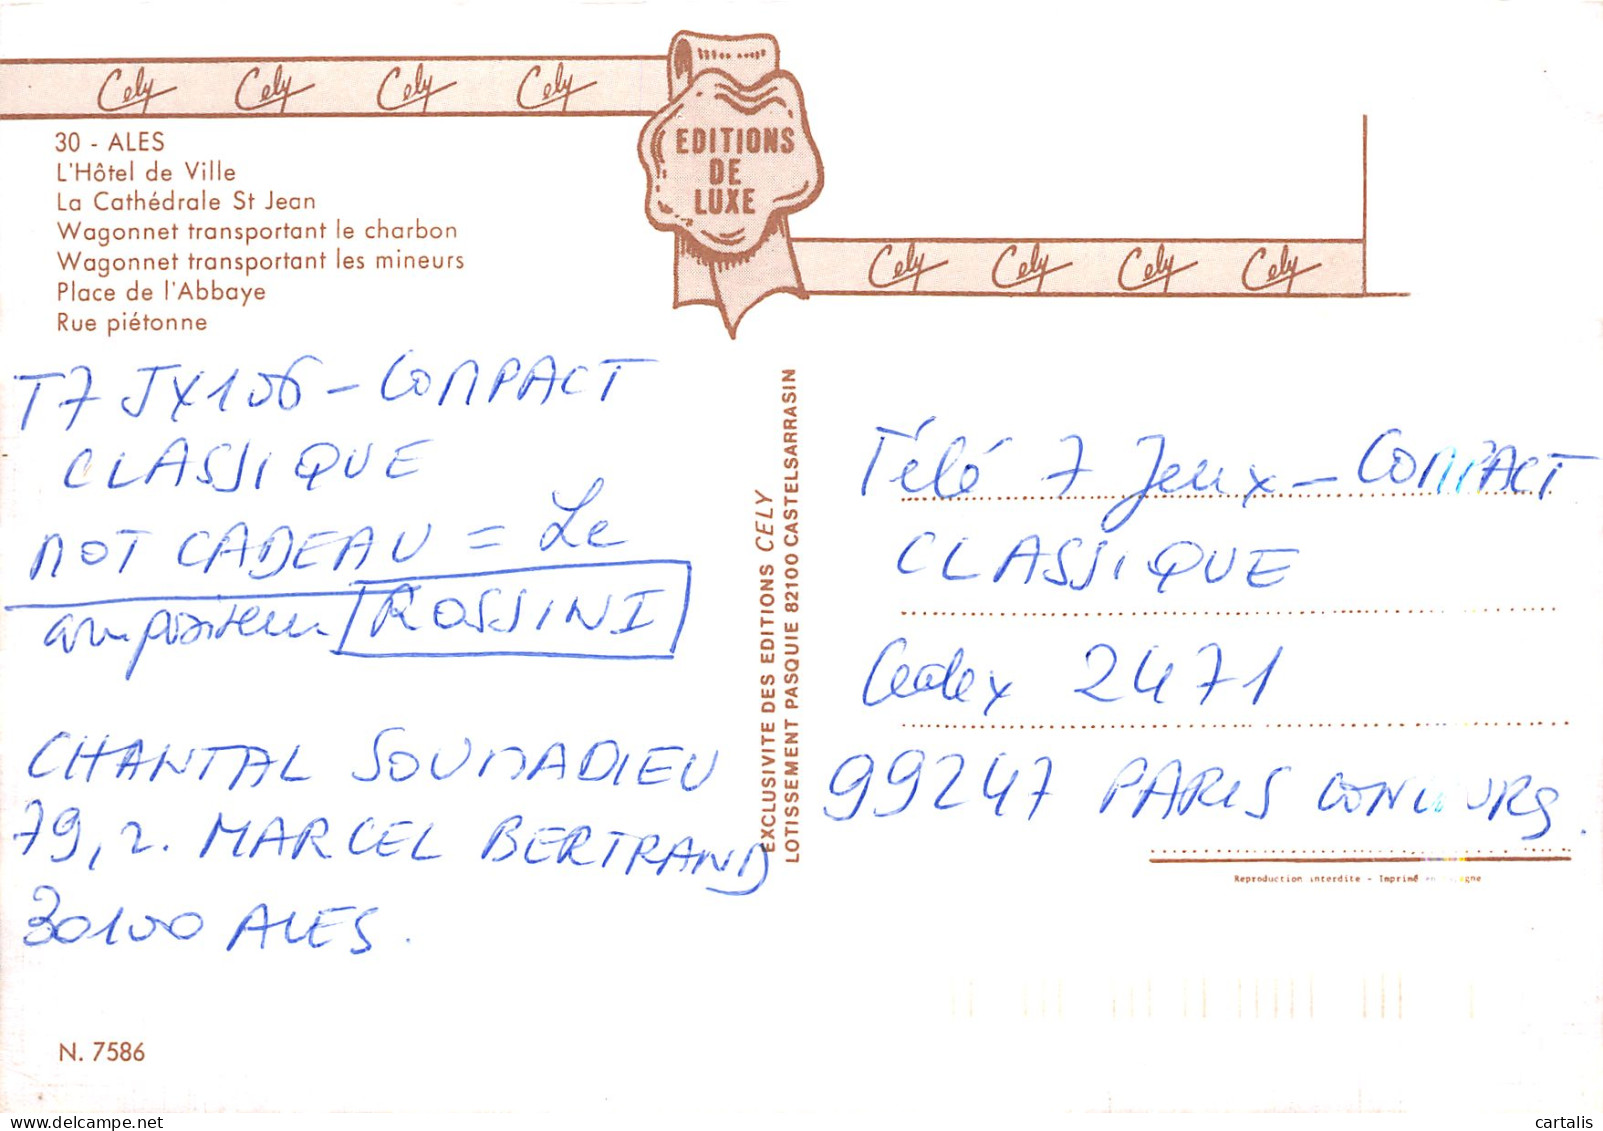 Cely Cely Cely Cely
EDITIONS
DE
LUXE
Cely Cely Cely Cely
30 - ALES
L'Hôtel de Ville
La Cathédrale St Jean
Wagonnet transportant le charbon
Wagonnet transportant les mineurs
Place de l'Abbaye
Rue piétonne
T7 JX106 - COMPACT
CLASSIQUE
MOT CADEAU = Le
compositeur ROSSINI
CHANTAL SOUMADIEU
79, r. MARCEL BERTRAND
30100 ALES.
N. 7586
EXCLUSIVITE DES EDITIONS CELY
LOTISSEMENT PASQUIE 82100 CASTELSARRASIN
Télé 7 Jeux - COMPACT
CLASSIQUE
Cedex 2471
99247 PARIS CONCOURS.
Reproduction interdite - Imprimé
cartalis